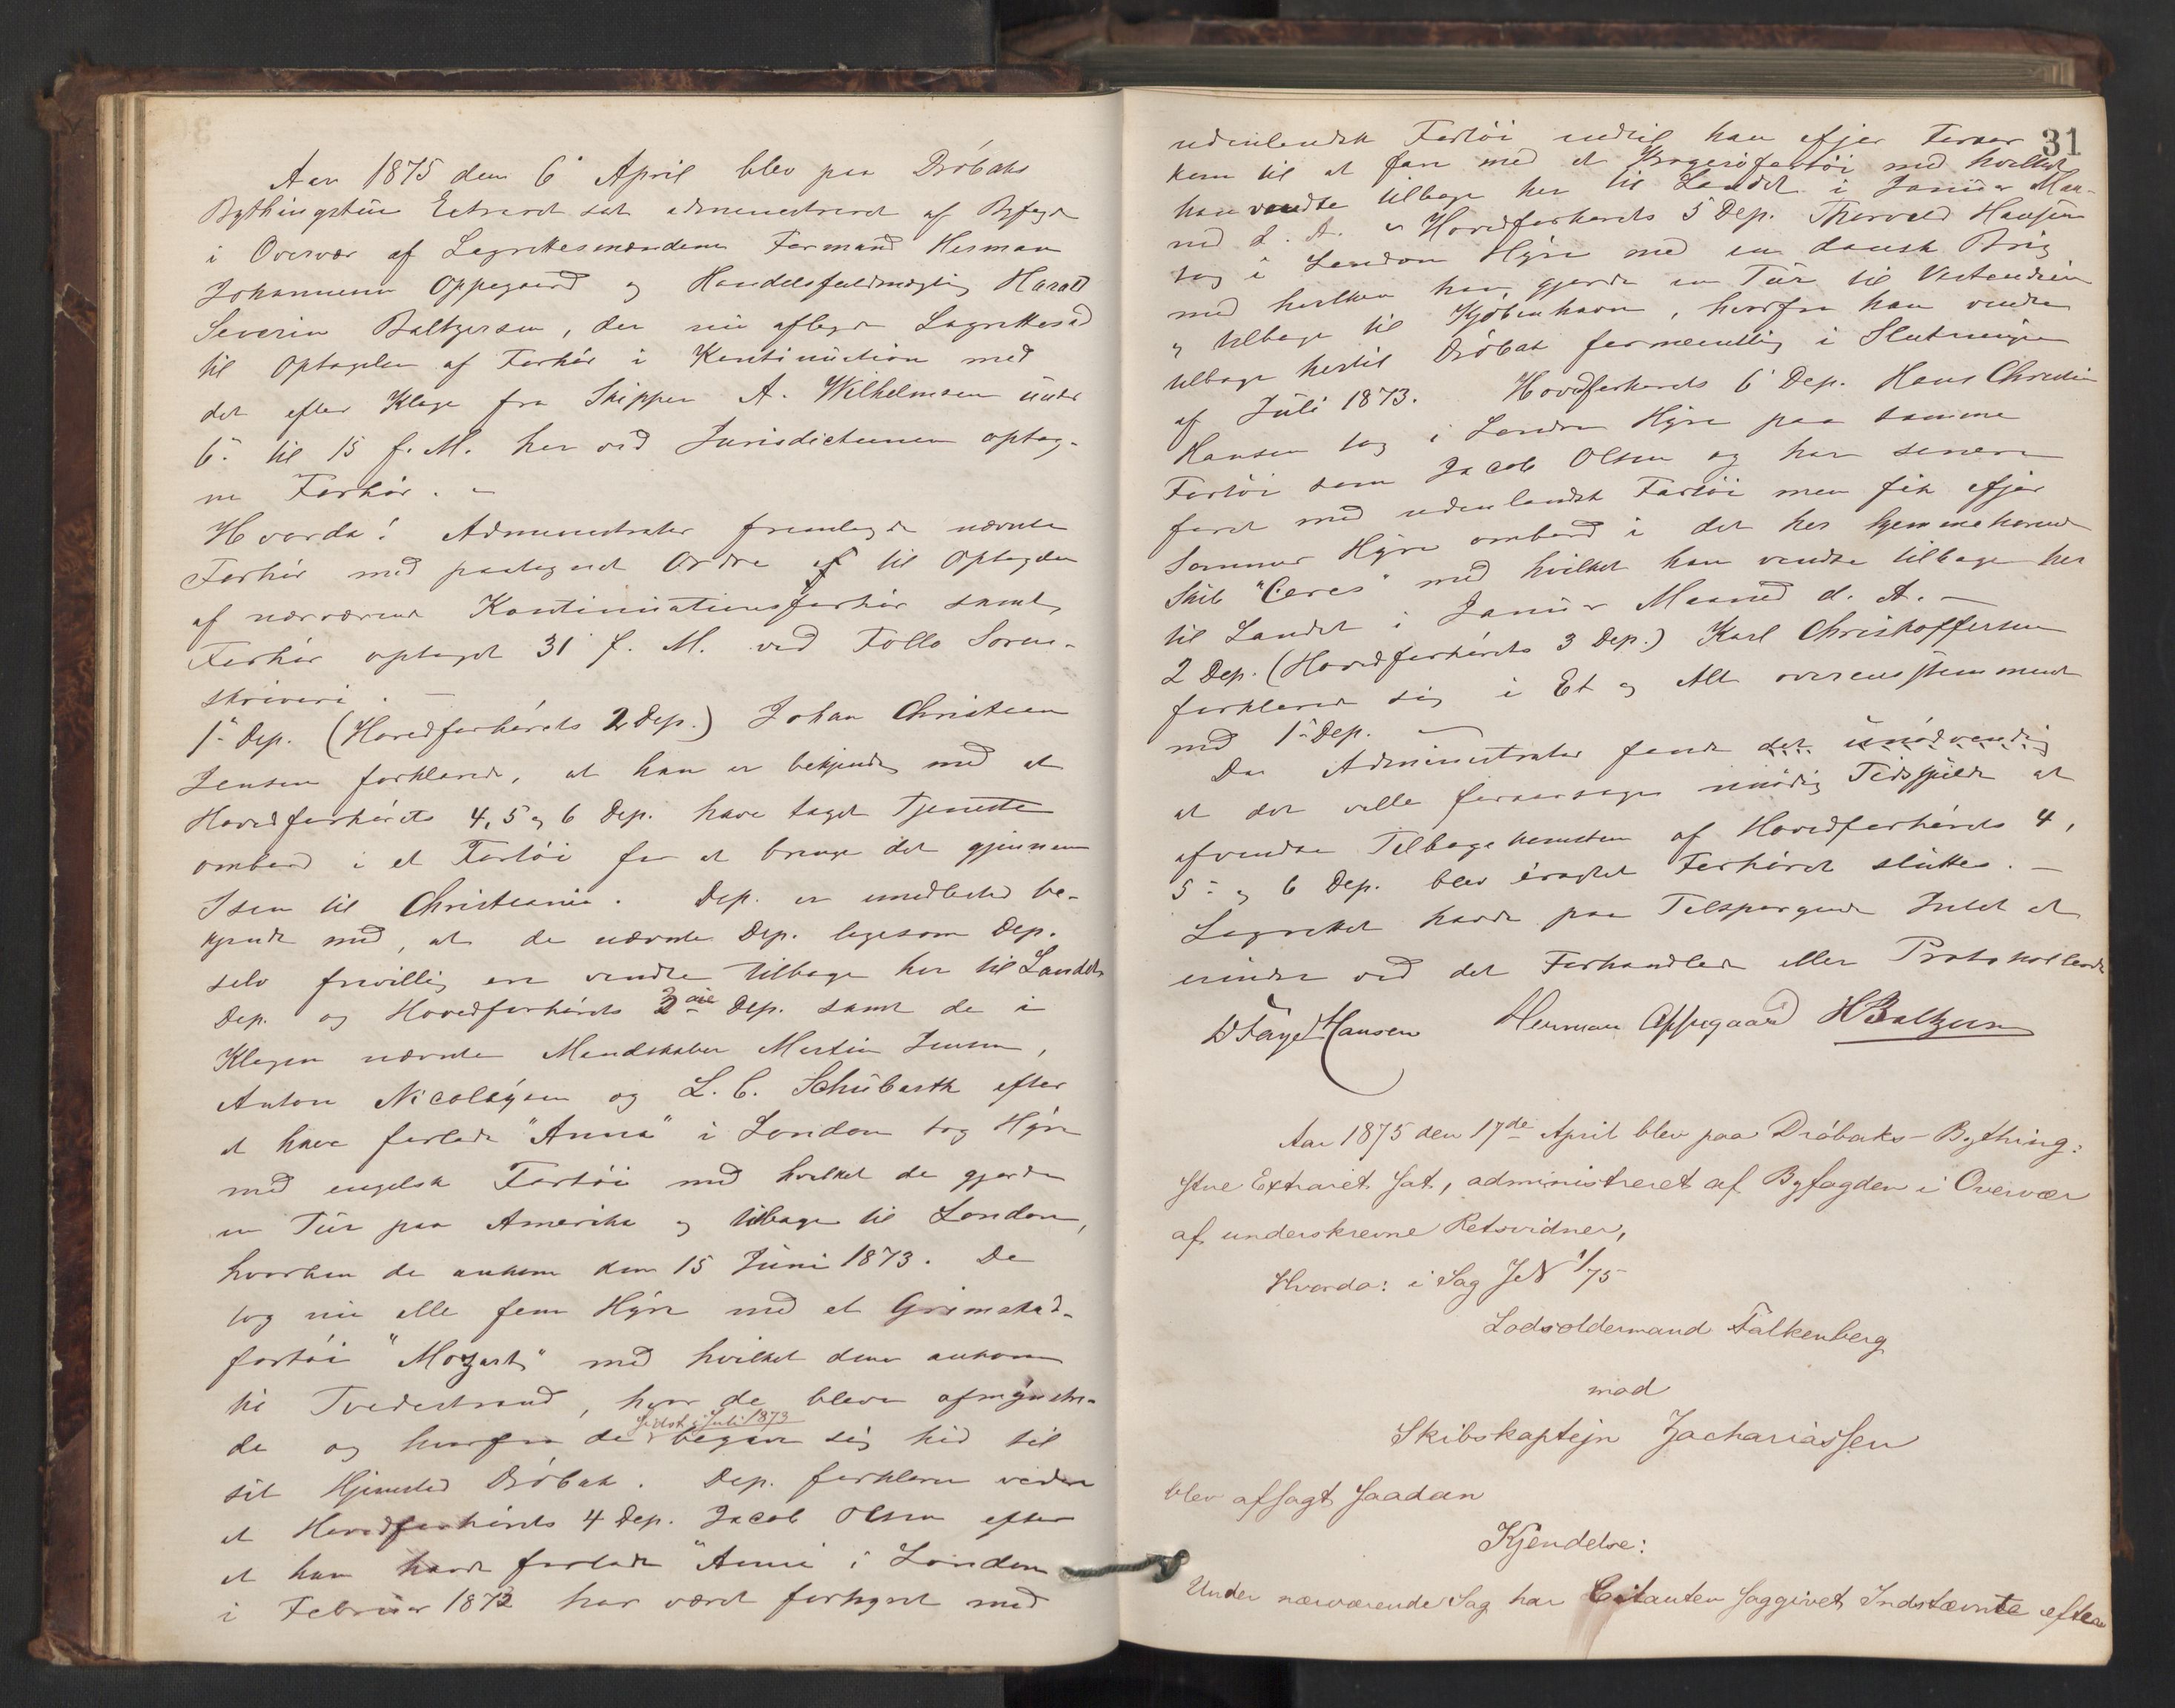 Aar 1875 den 6' April blev paa Dröbaks
Bythingstue Extraret sat administreret af Byfogden
i Overvær af Lagrettesmændene Formand Herman
Johannesen Oppegaard og Handelsfuldmægtig Harald
Severin Baltzersen, der nu aflagde Lagretteseed
til Optagelse af Forhör i Kontinuation med
det efter Klage fra Skipper A. Wilhelmsen under
6te til 15 f. M. her ved Jurisdictionen optag-
ne Forhör. –
Hvorda! Administrator fremlagde nævnte
Forhör med paategnet Ordre af til Optagelse
af nærværende Kontinuationsforhör samt
Forhör optaget 31 f. M. ved Follo Soren-
skriveri. –
1ste Dep. (Hovedforhörets 2 Dep.) Johan Christian
Jensen forklarede, at han er bekjendt med at
Hovedforhörets 4, 5 og 6 Dep. have taget Tjeneste
ombord i et Fartöi for at bringe det gjennem
Isen til Christiania. Dep. er imidlertid be-
kjendt med, at de nævnte Dep. ligesom Dep.
selv frivillig ere vendte tilbage her til Landet.
Dep. og Hovedforhörets 3die Dep. samt de i
Klagen nævnte Mandskaber Martin Jensen,
Anton Nicolaysen og L. C. Schübarth efter
at have forladt "Anna" i London tog Hyre
med engelsk Fartöi med hvilket de gjorde
en Tur paa Amerika og tilbage til London,
hvorhen de ankom den 15 Juni 1873. De
tog nu alle fem Hyre med et Grimstad-
fartöi "Mozart" med hvilket disse ankom
til Tvedestrand, hvor de bleve afmönstre-
de og hvorfra de sidst i Juli 1873 begave sig hid til
sit Hjemsted Dröbak. Dep. forklarer videre
at Hovedforhörets 4 Dep. Jacob Olsen efter
at han havde forladt "Anna" i London
i Februar 1873 har været forhyret med
31
udenlandsk Fartöi indtil han ifjor Foraar
kom til at fare med et Krageröfartöi med hvilket
han vendte tilbage her til Landet i Januar Maa-
ned d. A. – Hovedforhörets 5 Dep. Thorvald Hansen
tog i London Hyre med en dansk Brig
med hvilken han gjorde en Tur til Vestindien
og tilbage til Kjöbenhavn, hvorfra han vendte
tilbage hertil Dröbak formentlig i Slutningen
af Juli 1873. Hovedforhörets 6 Dep. Hans Christian
Hansen tog i London Hyre paa samme
Fartöi som Jacob Olsen og har senere
faret med udenlandsk Fartöi men fik ifjor
Sommer Hyre ombord i det her hjemmehörende
Skib "Ceres" med hvilket han vendte tilbage her
til Landet i Januar Maaned d. A. –
2 Dep. (Hovedforhörets 3 Dep.) Karl Christoffersen
forklarede sig i Et og Alt overensstemmende
med 1ste Dep. –
Da Administrator fandt det unödvendig
at det ville foraarsage unödig Tidsspilde at
afvendte Tilbagekomsten af Hovedforhörets 4,
5te og 6 Dep. blev eragtet Forhöret sluttes. –
Lagrettet havde paa Tilspörgende Intet at
erindre ved det Forhandlede eller Protokollerede
D Faye Hansen Herman Oppegaard HBaltzersen
Aar 1875 den 17de April blev paa Dröbaks-Bything-
stue Extraret sat, administreret af Byfogden i Overvær
af underskrevne Retsvidner,
Hvorda: i Sag JN 1/75
Lodsoldermand Falkenberg
mod
Skibskaptejn Zachariassen
blev afsagt saadan
Kjendelse:
Under nærværende Sag har Citanten saggivet Indstævnte efter